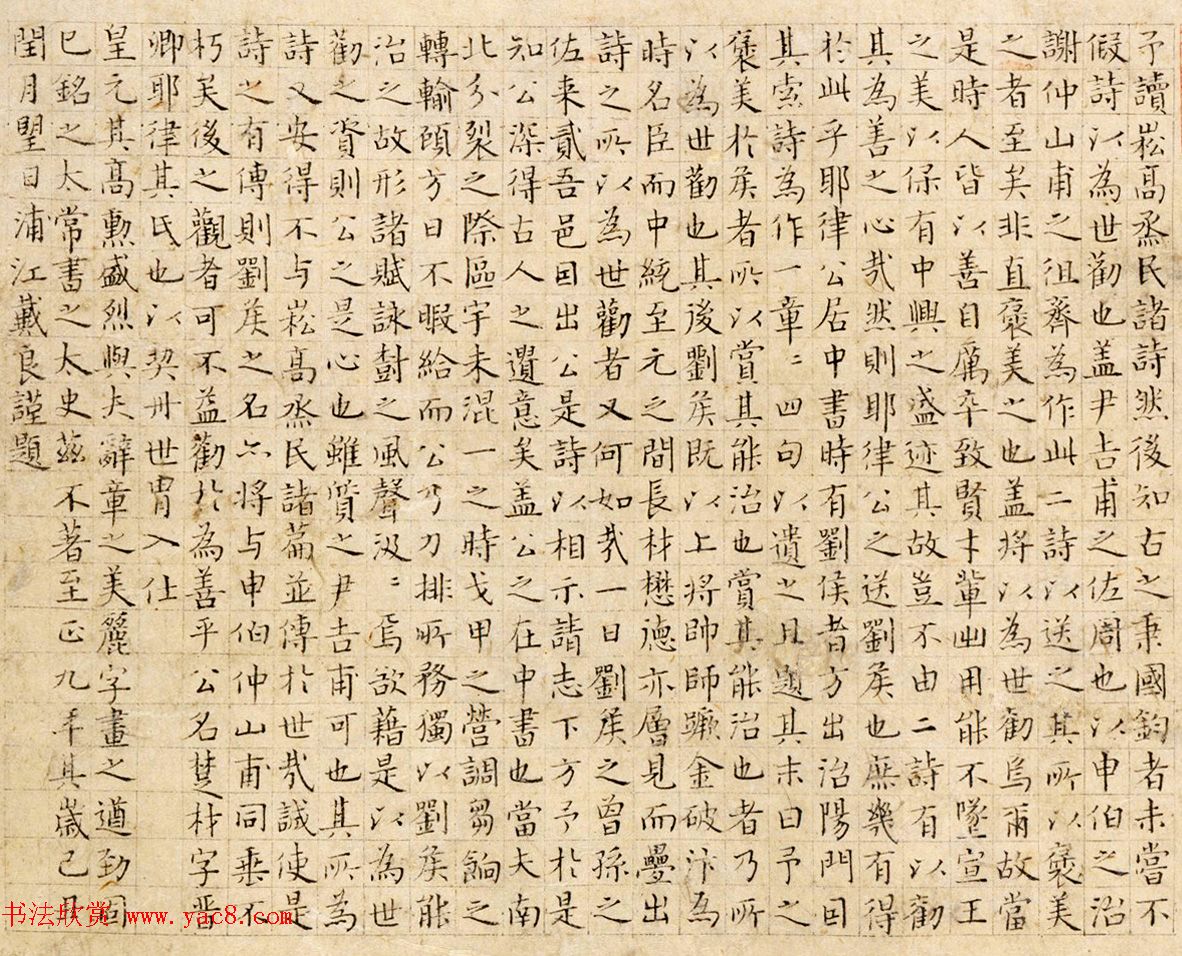 予讀崧髙烝民諸詩然後知古之秉國鈞者未嘗不
假詩以為世勸也盖尹吉甫之佐周也以申伯之治
謝仲山甫之徂齊為作此二詩以送之其所以褒美
之者至矣非直褒美之也盖將以為世勸烏爾故當
是時人皆以善自厲卒致賢才輩出用能不墜宣王
之美以保有中興之盛迹其故豈不由二詩有以勸
其為善之心㢤然則耶律公之送劉矦也庶幾有得
於此乎耶律公居中書時有劉侯者方出治陽門因
其索詩為作一章〻四句以遺之且題其末曰予之
褒美於矦者所以賞其能治也賞其能治也者乃所
以為世勸也其後劉矦既以上將帥師蹶金破汴為
時名臣而中統至元之間長材懋德亦層見而疊出
詩之所以為世勸者又何如㢤一日劉矦之曾孫之
佐来貳吾邑因出公是詩以相示請志下方予於是
知公深得古人之遺意矣盖公之在中書也當大南
北分裂之際區宇未混一之時戈甲之營調芻餉之
轉輸頋方日不暇給而公乃力排所務獨以劉矦能
治之故形諸賦詠尌之風聲汲〻焉欲藉是以為世
勸之資則公之是心也雖質之尹吉甫可也其所為
詩又安得不与崧髙烝民諸萹並傳於世㢤誠使是
詩之有傳則劉矦之名亦將与申伯仲山甫同垂不
朽矣後之觀者可不益勸於為善乎公名楚材字晋
卿耶律其氏也以契丹世胄入仕
皇元其髙勳盛烈與夫辭章之美麗字畫之遒勁固
已銘之太常書之太史茲不著至正九年其歲己丑
閏月朢日浦江戴良謹題
书法欣赏 www.yac8.com